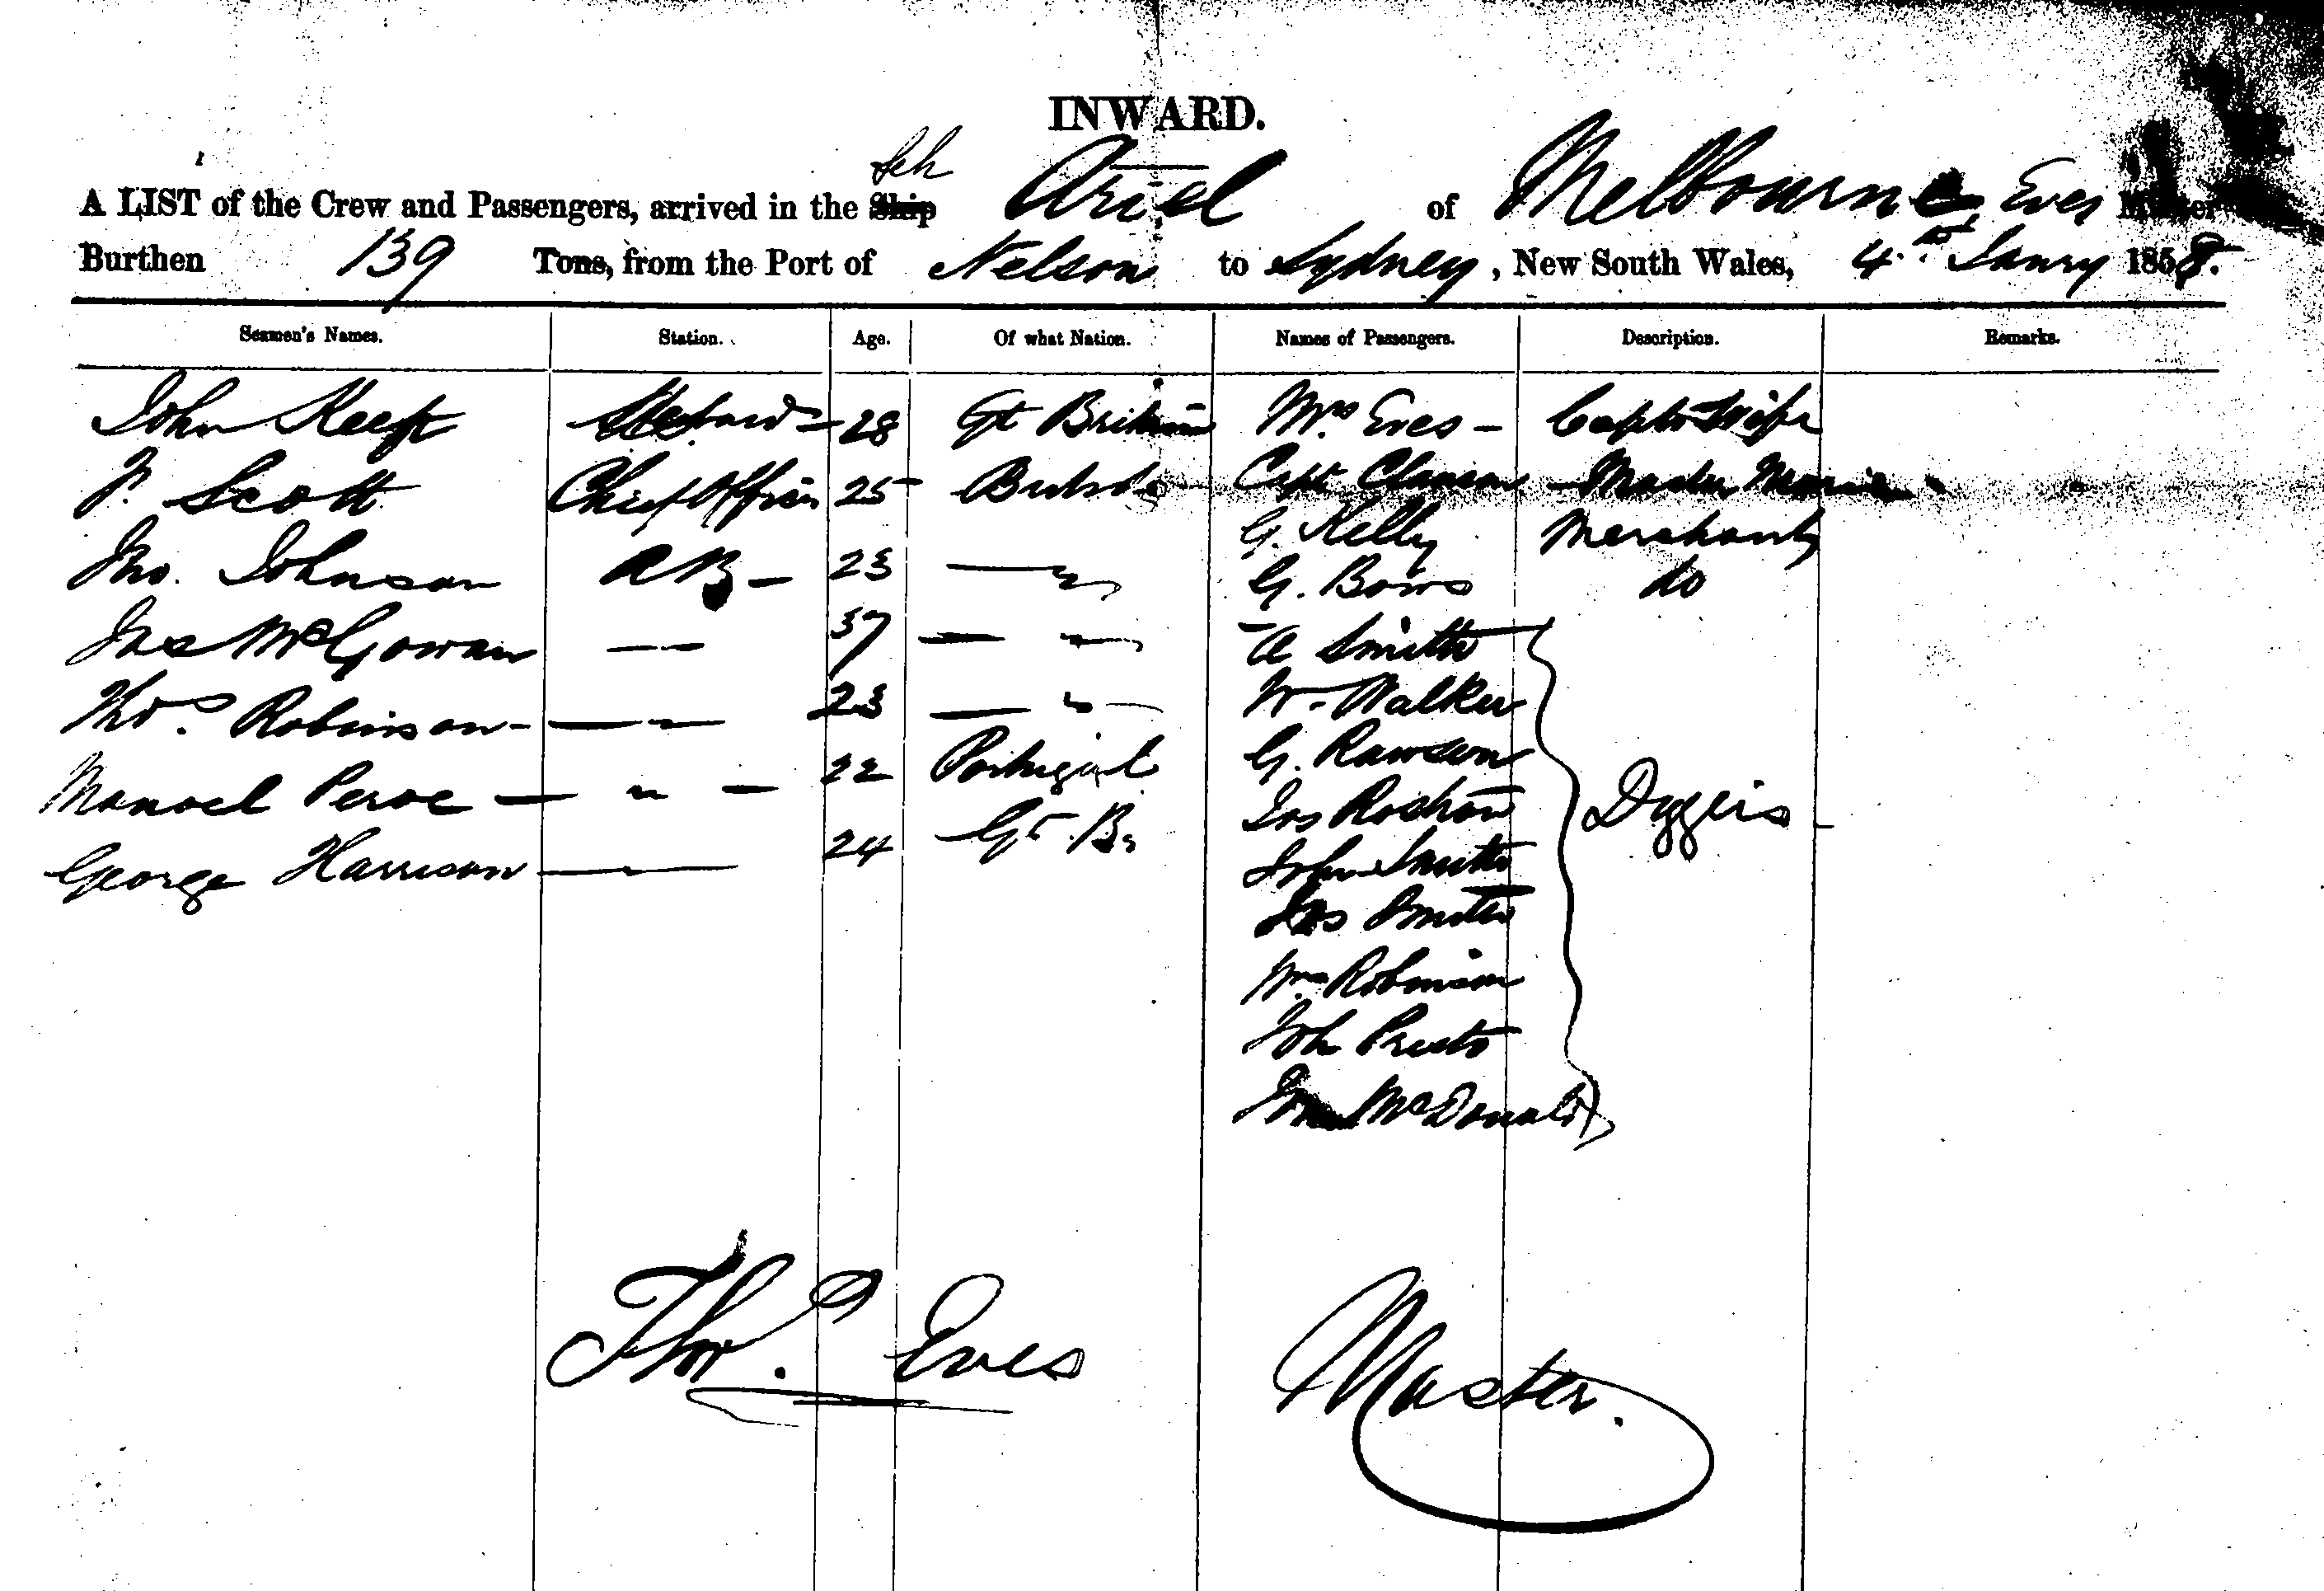 INWARD.
Sch
A LIST of the Crew and Passengers, arrived in the Ship Ariel of Melbourne, Eves Master
Burthen 139 Tons, from the Port of Nelson to Sydney, New South Wales, 4th Janry 1858.
Seamen's Names. Station. Age. Of what Nation. Names of Passengers. Description. Remarks.
John Keeft Steward 28 Gt Britain Mrs Eves - Capts Wife
Scott Chief Officer 25 Capt - Master Marine
Jno. Johnson AB - 23 — " G. Kelly Merchants
G. Bows do
Jas McGowan — 37 — " — A Smith
Thos. Robinson - — " — 23 — " — W. Walker
G. Rawson
Manoel Peroe — " — 22 Portugal Jos Diggers
George Harrison — " — 24 Gt. Br. John Smith
Jas Smith
Wm Robinson
Joh
McDonald
Thos. Eves Master.